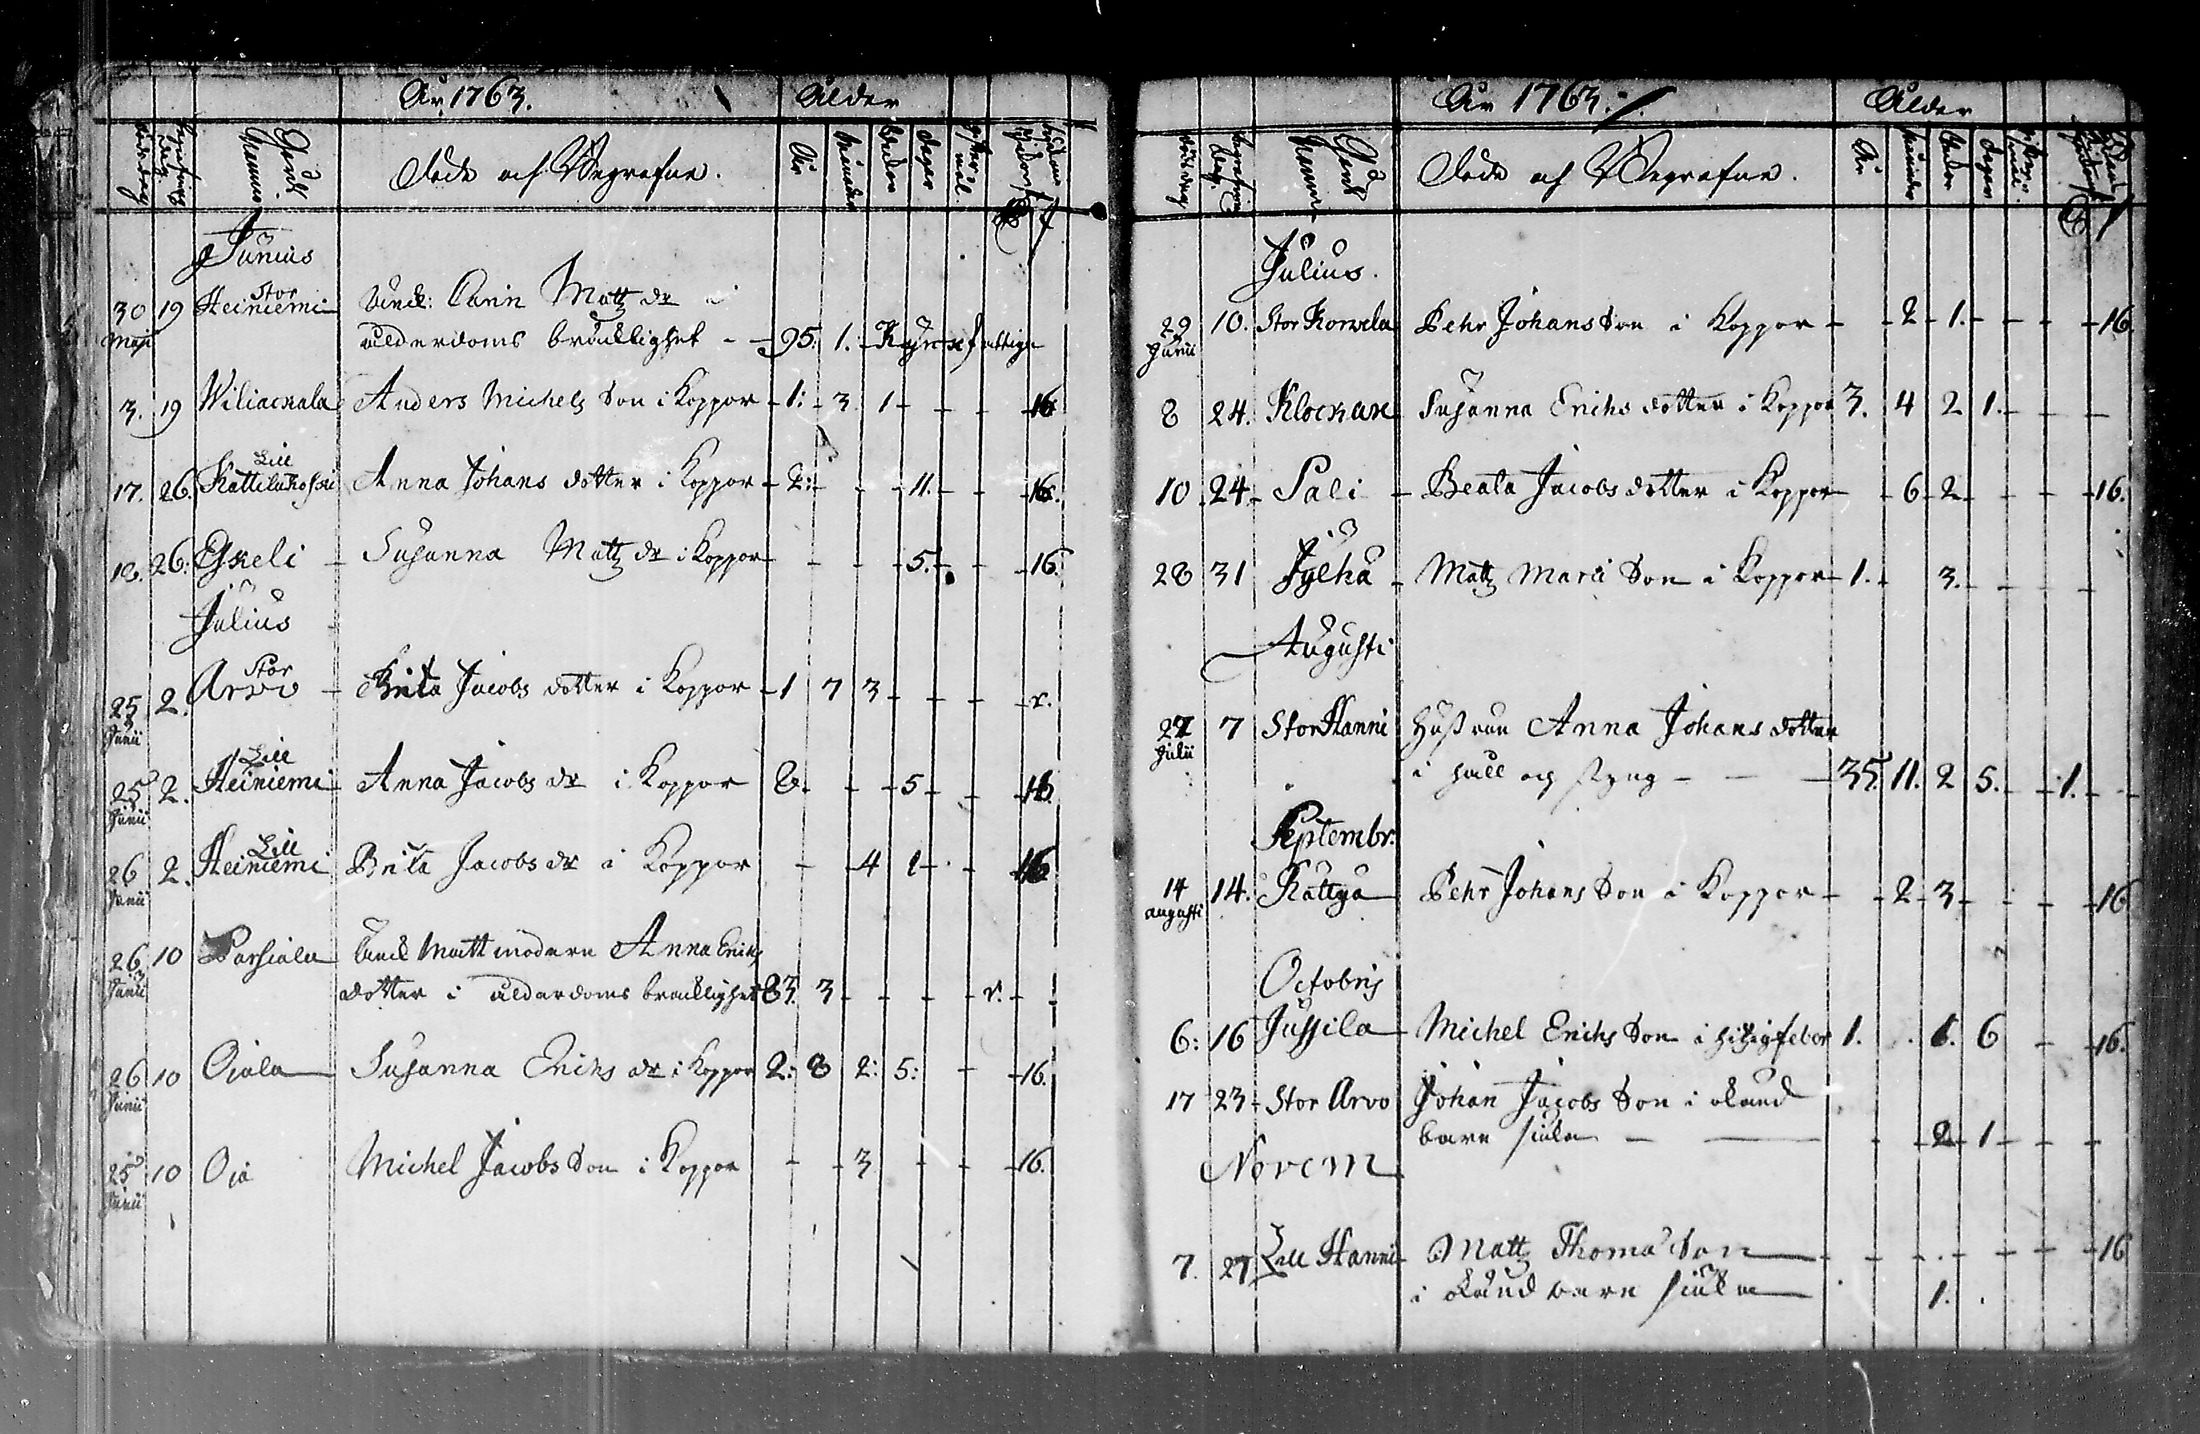 År 1763. Ålder
Dödedag Begrafnings dag Gårds Namn Döde och Begrafne. År Månader Wekor dagar
Junius
30 Maji 19 Stor Heiniemi Enck: Carin Mattz dr i
ålderdoms bräcklighet - - 95. 1. - Kyrckfattige
3. 19 Wiliackala Anders Michelsson i Koppor - 1: - 3. 1 - - - 16
17. 26. Lill Kattilukoski Anna Johans dotter i Koppor - 2: - - - 11. - - 16.
18. 26: Eskeli - Susanna Mattz dr i Koppor - - - 5. - - 16.
Julius
25 Junii 2. Stor Arvo - Brita Jacobs dotter i Koppor - 1 7 3 - - - - r.
25 Junii 2. Lill Heiniemi Anna Jacobs dr i Koppor 8. - - - 5 - - 16.
26 Junii 2. Lill Heiniemi Brita Jacobs dr i Koppor - 4 1 - - 16
26 Junii 10 Parsiala Enck Matt modern Anna Erichs
dotter i ålderdoms bräcklighet 83. 3 - - - - r. - -
26 Junii 10 Ojala Susanna Erichs dr i Koppor 2: 8 2: 5: - 16.
25 Junii 10 Oja Michel Jacobs Son i Koppor - - 3 - - - 16.
År 1763. Ålder
Dödedag Begrafnings dag Gårds Namn Döde och Begrafne. År Månader Wekor dagar
Julius.
29 Junii 10. Stor Korvela Pehr Johans Son i Koppor - - 2 - 1. - - - - 16.
8 24. Klockare Susanna Erichs dotter i Koppor 3. 4 2 1. - - -
10 24 - Pali - Beata Jacobs dotter i Koppor - - 6 - 2 - - - - 16.
28 31 Jylhä - Mattz Mariæ Son i Koppor - 1. - 3. - - - -
Augusti
27 Julii 7 Stor Hanni Hustrun Anna Johans dotter
i håll och styng - - - 35. 11. 2 5. - - 1. - -
Septembr.
14 augusti 14. Kattga Pehr Johans Son i Koppor - - 2 - 3 - - - - 16
Octobris
6: 16 Jussila Michel Erichs Son i hitzigfeber 1. . 6. 6 - - 16.
17 23 - Stor Arvo Johan Jacobs Son i okänd
barn siuka - - - 2 - 1 - - -
Novem
7. 27 Lill Hanni - Mattz Thomæ Son - - - - - - - 16
i okänd barn siuka 1. .